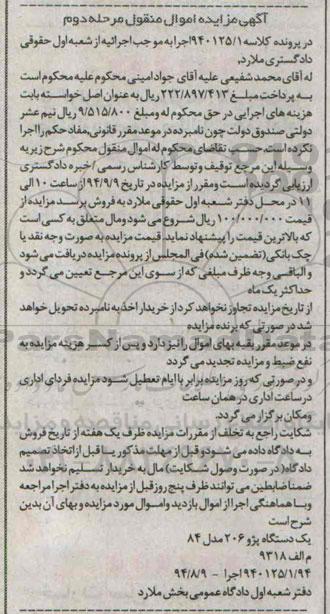 آگهی مزایده اموال منقول مرحله دوم
در پرونده کلاسه ۹۴۰۱۲۵/۱اجرا به موجب اجرائیه از شعبه اول حقوقی
دادگستری ملارد،
له آقای محمدشفیعی علیه آقای جوادامینی محکوم علیه محکوم است
به پرداخت مبلغ ۲۲۲/۸۹۷/۴۱۳ ریال به عنوان اصل خواسته بابت
هزینه های اجرایی در حق محکوم له ومبلغ ۹/۵۱۵/۸۰۰ ریال نیم عشر
دولتی صندوق دولت چون نامبرده در موعد مقرر قانونی،مفادحکم رااجرا
نکرده است حسب تقاضای محکوم له اموال منقول محکوم شرح زیر به
وسیله این مرجع توقیف و توسط کارشناس رسمی /خبره دادگستری
ارزیابی گردیده است ومقرراز مزایده در تاریخ ۹۴/۹/۹از ساعت ۱۰الی
۱۱ در محل دفتر شعبه اول حقوقی ملارد به فروش برسد مزایده از
قیمت ۱۰۰/۰۰۰/۰۰۰ ریال شروع می شود ومال متعلق به کسی است
که بالاترین قیمت را پیشنهاد نماید قیمت مزایده به صورت وجه نقد یا
چک بانکی(تضمین شده)فی المجلس از پرونده مزایده دریافت می شود
و الباقی وجه ظرف مبلغی که از سوی این مرجع تعیین می گردد و
حداکثر یک ماه
از تاریخ مزایده تجاوز نخواهد کرد از خریدار اخذ به نامبرده تحویل خواهد
شد در صورتی که برنده مزایده
در موعد مقرر بقیه بهای اموال را نپردازد و پس از کسر هزینه مزایده به
نفع ضبط و مزایده تجدید می گردد
و در صورتی که روز مزایده برابر با ایام تعطیل شود مزایده فردای اداری
در ساعت اداری در همان ساعت
ومکان برگزار می گردد.
شکایت راجع به تخلف از مقررات مزایده ظرف یک هفته از تاریخ فروش
به دادگاه داده می شود و قبل از مهلت مذکور یا قبل از اتخاذ تصمیم
دادگاه( در صورت وصول شکایت) مال به خریدار تسلیم نخواهد شد
ضمناضابطین می توانند ظرف پنج روز قبل از مزایده به دفتر اجرا مراجعه
وبا هماهنگی اجرا از اموال بازدید واموال مورد مزایده و بهای آن بدین
شرح است
یک دستگاه پژو ۲۰۶ مدل ۸۴
م الف ۹۳۱۸
۹۴۰۱۲۵/۱/۹۴ اجرا - ۹۴/۸/۹
دفتر شعبه اول دادگاه عمومی بخش ملارد